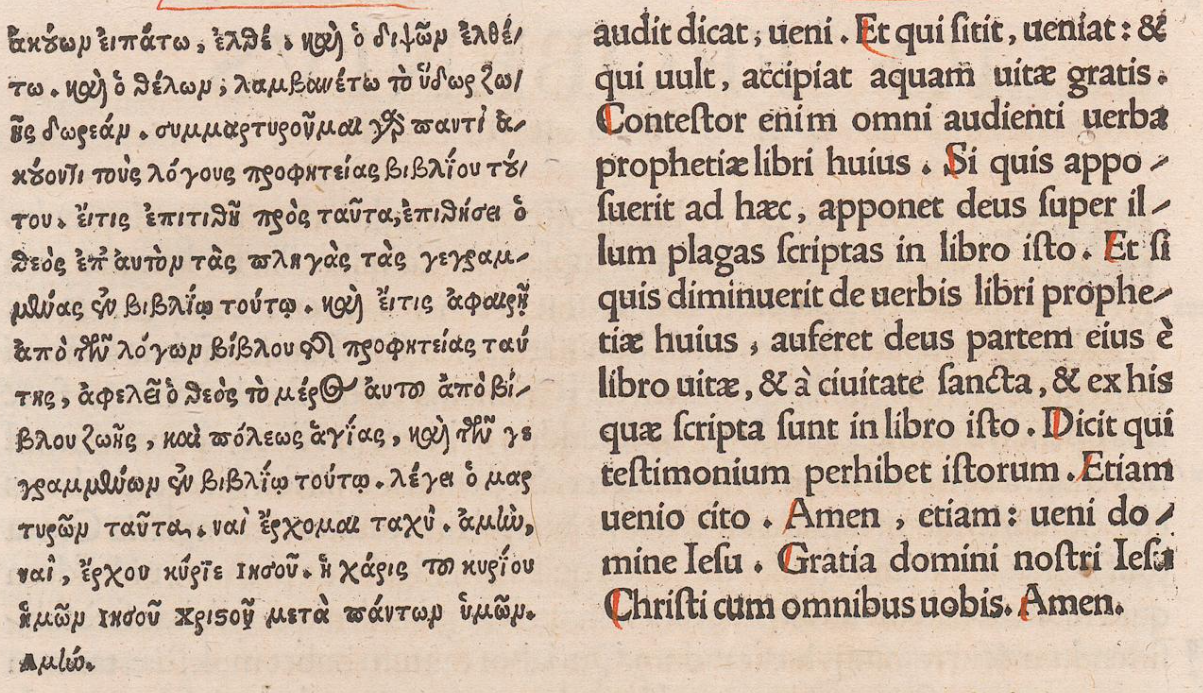 ἀκούων ειπάτω, ἐλθέ. καὶ ὁ διψῶν ἐλθέ/
τω. καὶ ὁ θέλων, λαμβανέτω τὸ ὕδωρ ζω/
ῆς δωρεάν. συμμαρτυροῦμαι γὰρ παντὶ ἀ-
κούοντι τοὺς λόγους προφητείας βιβλίου τού/
του. ἔιτις ἐπιτιθῇ πρὸς ταῦτα, ἐπιθήσει ὁ
θεὸς ἐπ' ἀυτὸν τὰς πληγὰς τὰς γεγραμ-
μένας ἐν βιβλίῳ τούτῳ. καὶ ἔιτις ἀφαιρῇ
ἀπὸ τῶν λόγων βίβλου τῆς προφητείας ταύ
της, ἀφελεῖ ὁ θεὸς τὸ μέρος ἀυτοῦ ἀπὸ βί-
βλου ζωῆς, καὶ πόλεως ἁγίας, καὶ τῶν γε
γραμμένων ἐν βιβλίῳ τούτῳ. λέγει ὁ μαρ
τυρῶν ταῦτα. ναὶ ἔρχομαι ταχύ. ἀμήν,
ναὶ, ἔρχου κύριε ιησοῦ. ἡ χάρις τοῦ κυρίου
ἡμῶν ιησοῦ χριστοῦ μετὰ πάντων ὑμῶν.
Αμήν.
audit dicat, ueni. Et qui ſitit, ueniat: &
qui uult, accipiat aquam uitæ gratis.
Conteſtor enim omni audienti uerba
prophetiæ libri huius. Si quis appo-
ſuerit ad hæc, apponet deus ſuper il-
lum plagas ſcriptas in libro iſto. Et ſi
quis diminuerit de uerbis libri prophe-
tiæ huius, auferet deus partem eius è
libro uitæ, & à ciuitate ſancta, & ex his
quæ ſcripta ſunt in libro iſto. Dicit qui
teſtimonium perhibet iſtorum. Etiam
uenio cito. Amen, etiam: ueni do-
mine Ieſu. Gratia domini noſtri Ieſu
Chriſti cum omnibus uobis. Amen.